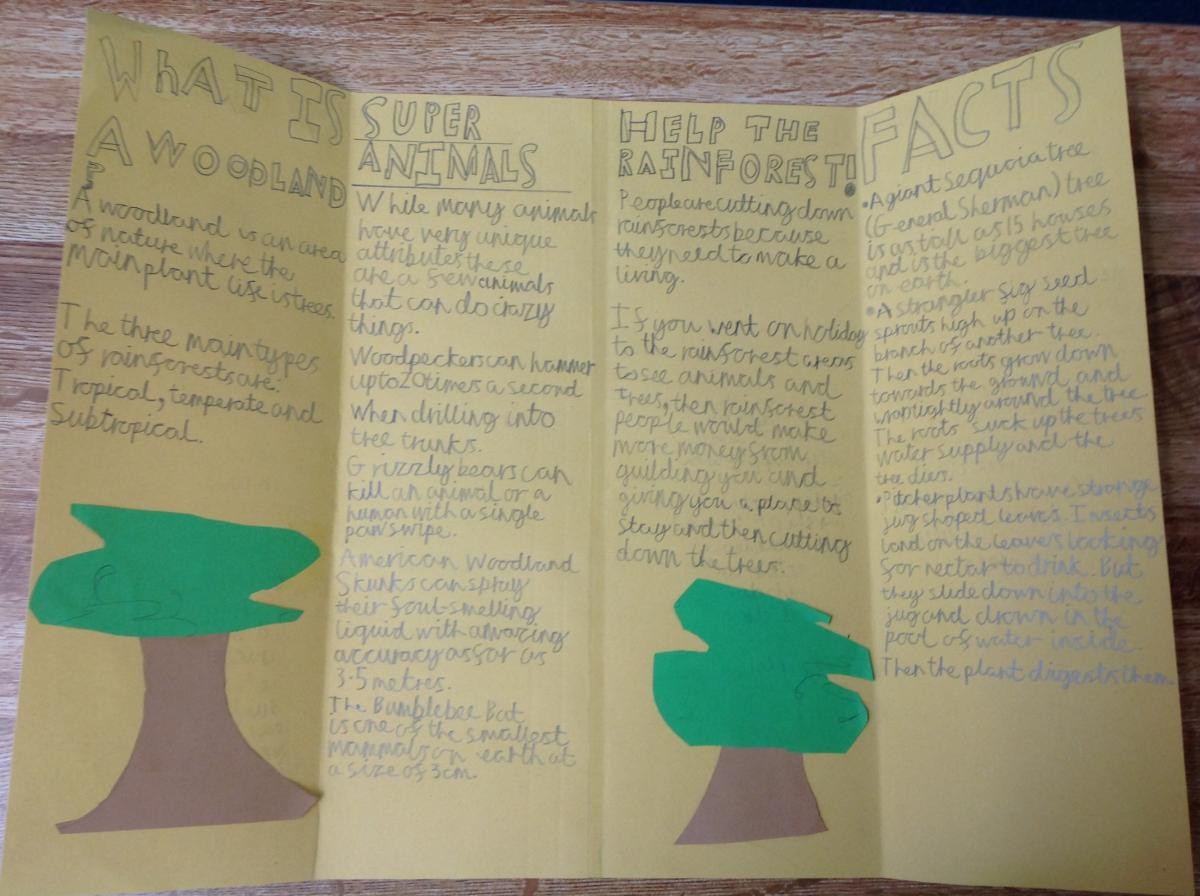 WhAT IS
A WOODLAND
?
A woodland is an area
of nature where the
main plant life is trees.
The three main types
of rainforests are:
Tropical, temperate and
Subtropical.
SUPER
ANIMALS
While many animals
have very unique
attributes these
are a few animals
that can do crazy
things.
Woodpeckers can hammer
up to 20 times a second
when drilling into
tree trunks.
Grizzly bears can
kill an animal or a
human with a single
paw swipe.
American Woodland
Skunks can spray
their foul-smelling
liquid with amazing
accuracy as far as
3.5 metres.
The Bumblebee Bat
is one of the smallest
mammals on earth at
a size of 3cm.
HELP THE
RAINFOREST!
People are cutting down
rainforests because
they need to make a
living.
If you went on holiday
to the rainforest areas
to see animals and
trees, then rainforest
people would make
more money from
guilding you and
giving you a place to
stay and then cutting
down the trees.
FACTS
•A giant Sequoia tree
(General Sherman) tree
is as tall as 15 houses
and is the biggest tree
on earth.
•A strangler fig seed
sprouts high up on the
branch of another tree.
Then the roots grow down
towards the ground and
wraptightly around the tree.
The roots suck up the trees
water supply and the
tree dies.
•Pitcher plants have strange
jug shaped leaves. Insects
land on the leaves looking
for nectar to drink. But
they slide down into the
jug and drown in the
pool of water inside.
Then the plant digests them.